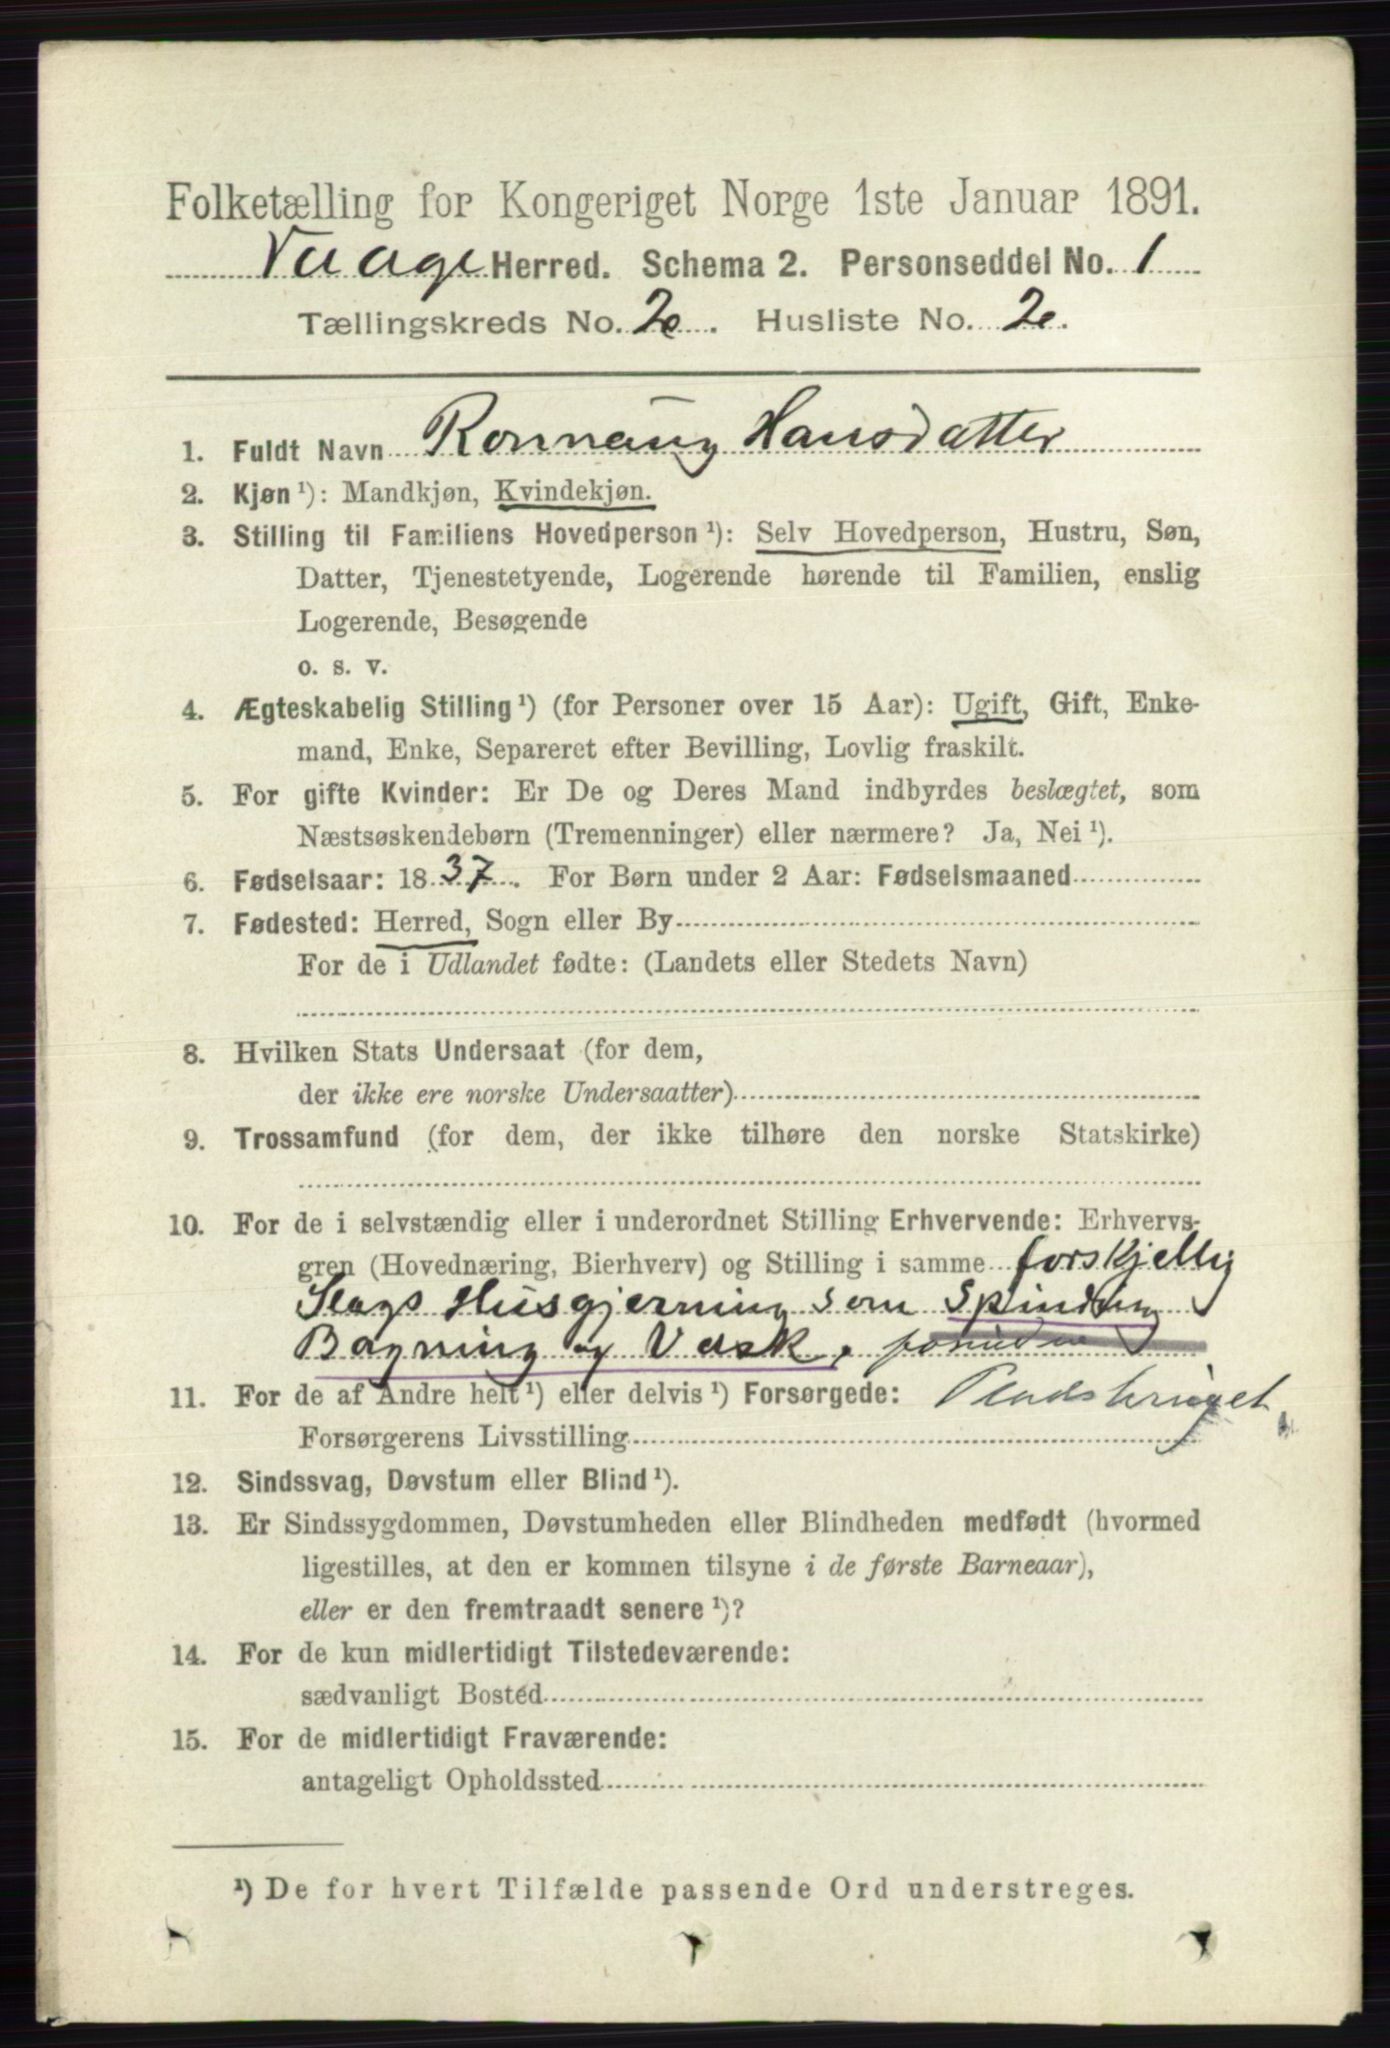 Folketælling for Kongeriget Norge 1ste Januar 1891.
Vaage Herred. Schema 2. Personseddel No. 1
Tællingskreds No. 2. Husliste No. 2.
1. Fuldt Navn Ronnaug Hansdatter
2. Kjøn ¹): Mandkjøn, Kvindekjøn.
3. Stilling til Familiens Hovedperson ¹): Selv Hovedperson, Hustru, Søn,
Datter, Tjenestetyende, Logerende hørende til Familien, enslig
Logerende, Besøgende
o. s. v.
4. Ægteskabelig Stilling ¹) (for Personer over 15 Aar): Ugift, Gift, Enke-
mand, Enke, Separeret efter Bevilling, Lovlig fraskilt.
5. For gifte Kvinder: Er De og Deres Mand indbyrdes beslægtet, som
Næstsøskendebørn (Tremenninger) eller nærmere? Ja, Nei ¹).
6. Fødselsaar: 1837. For Børn under 2 Aar: Fødselsmaaned
7. Fødested: Herred, Sogn eller By
For de i Udlandet fødte: (Landets eller Stedets Navn)
8. Hvilken Stats Undersaat (for dem,
der ikke ere norske Undersaatter)
9. Trossamfund (for dem, der ikke tilhøre den norske Statskirke)
10. For de i selvstændig eller i underordnet Stilling Erhvervende: Erhvervs-
gren (Hovednæring, Bierhverv) og Stilling i samme forskjellig
Slags Husgjerning som Spinding
Bagning og Vask, foruden
11. For de af Andre helt ¹) eller delvis ¹) Forsørgede: Pladsbruget
Forsørgerens Livsstilling
12. Sindssvag, Døvstum eller Blind ¹).
13. Er Sindssygdommen, Døvstumheden eller Blindheden medfødt (hvormed
ligestilles, at den er kommen tilsyne i de første Barneaar),
eller er den fremtraadt senere ¹)?
14. For de kun midlertidigt Tilstedeværende:
sædvanligt Bosted
15. For de midlertidigt Fraværende:
antageligt Opholdssted
¹) De for hvert Tilfælde passende Ord understreges.